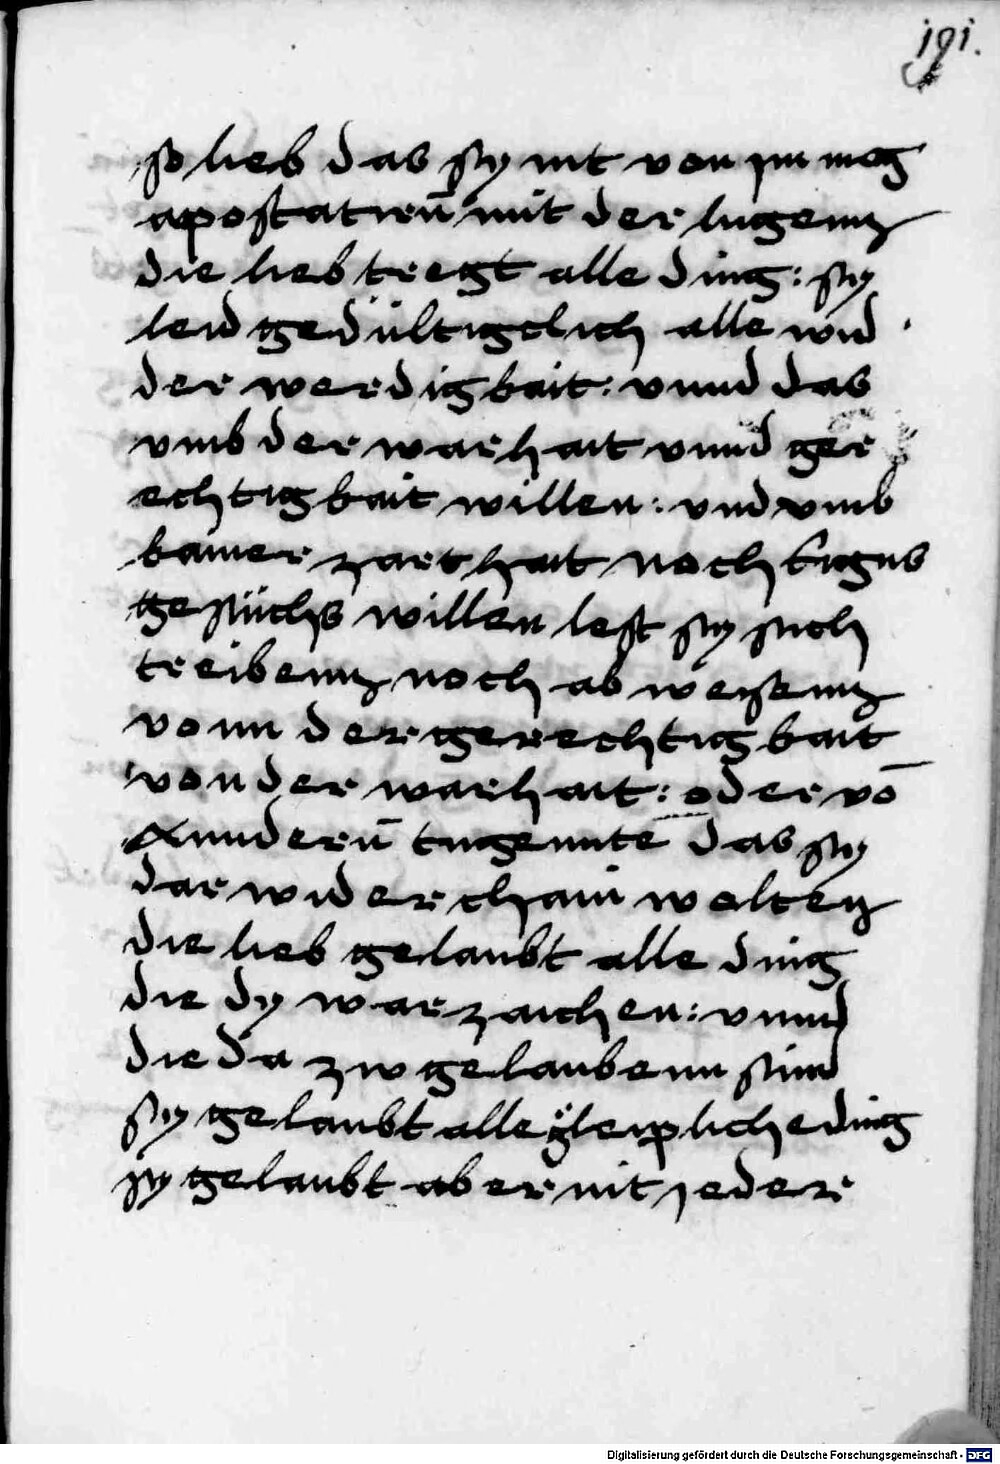 191.
so lieb das sy nit von jm mog
apostatiern̄ mit der lugenn
die lieb tregt alle ding: sy
leid gedültigclich alle wid
der werdigkait: vnnd das
vmb der warhait vnnd ger
echtigkait willen: vnd vmb
kainer zarthait noch aigns
gesüchs willen lest sy sich
treibenn noch ab weisenn
vonn der gerechtigkait
von der warhait: oder vō
anndern̄ tugennte das sy
dar wider thain wolten
die lieb gelaubt alle ding
die dy warzaichen: vnnd
die da zw gelaubenn sinnd
sy gelaubt alle gleipliche ding
sy gelaubt aber nit jeder
Digitalisierung gefördert durch die Deutsche Forschungsgemeinschaft - DFG